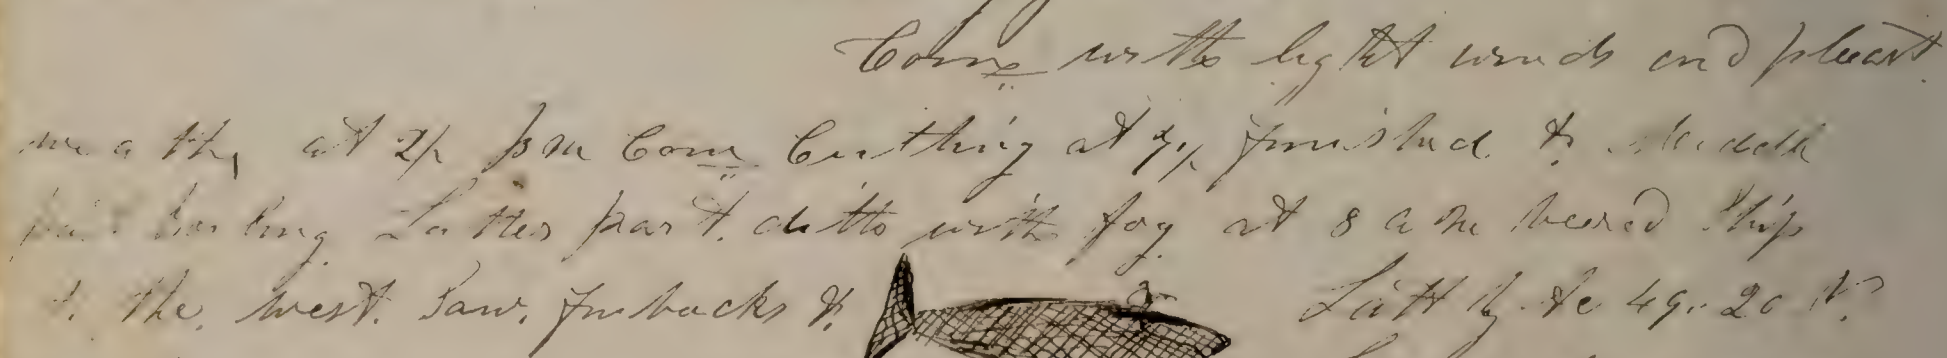 Come with light winds and pleast
weath, at 2 pm Come Cutting at 7 finished &. Middle
part boiling Latter part. ditto with fog at 8 am weared Ship
t. the. west. Saw. finbacks &. Latt by. 49. 20 N.